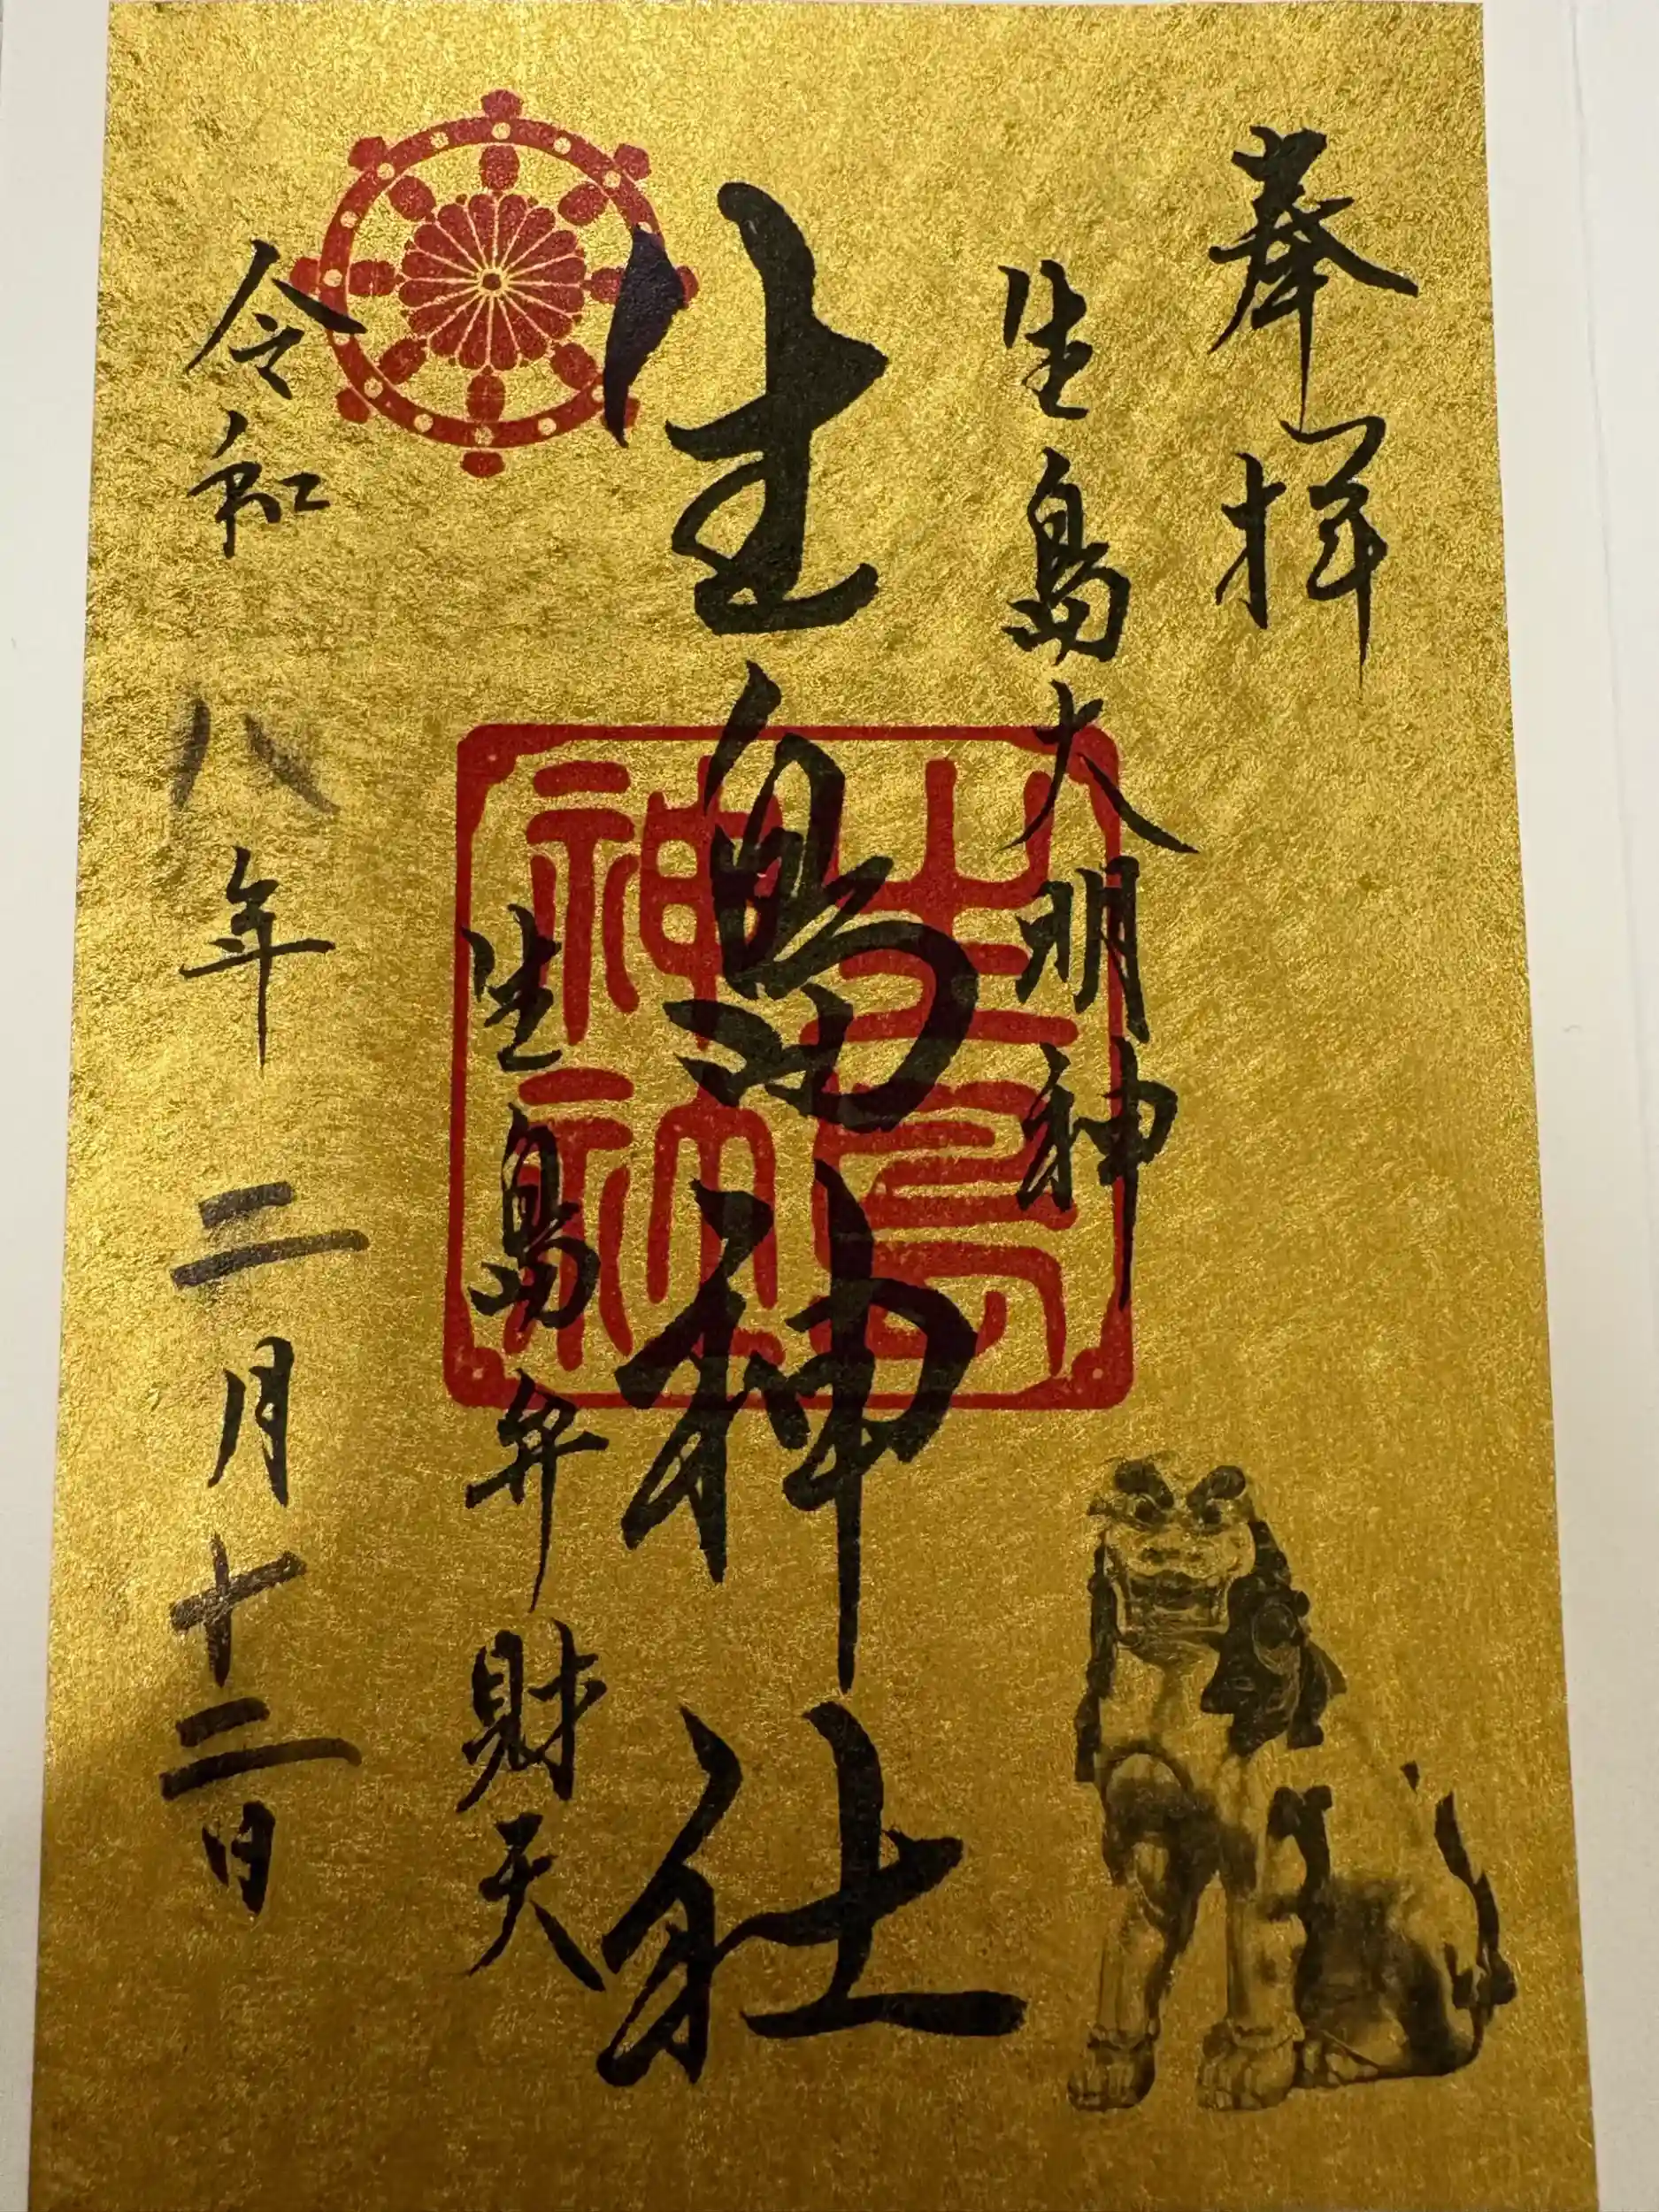 奉拝
生島大明神
生島神社
生島神社
生島弁財天
令和八年二月十二日